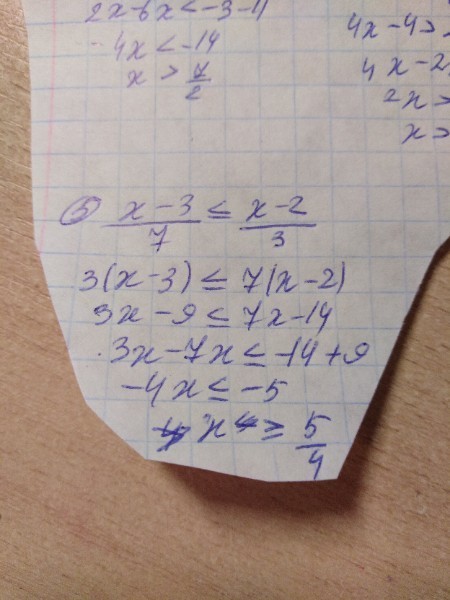 2x-6x<-3-11
-4x<-14
x > 7/2
4x-4>
4x-2
2x>
x>
⑤ x-3/7 ≤ x-2/3
3(x-3) ≤ 7(x-2)
3x-9 ≤ 7x-14
3x-7x ≤ -14+9
-4x ≤ -5
x ≥ 5/4